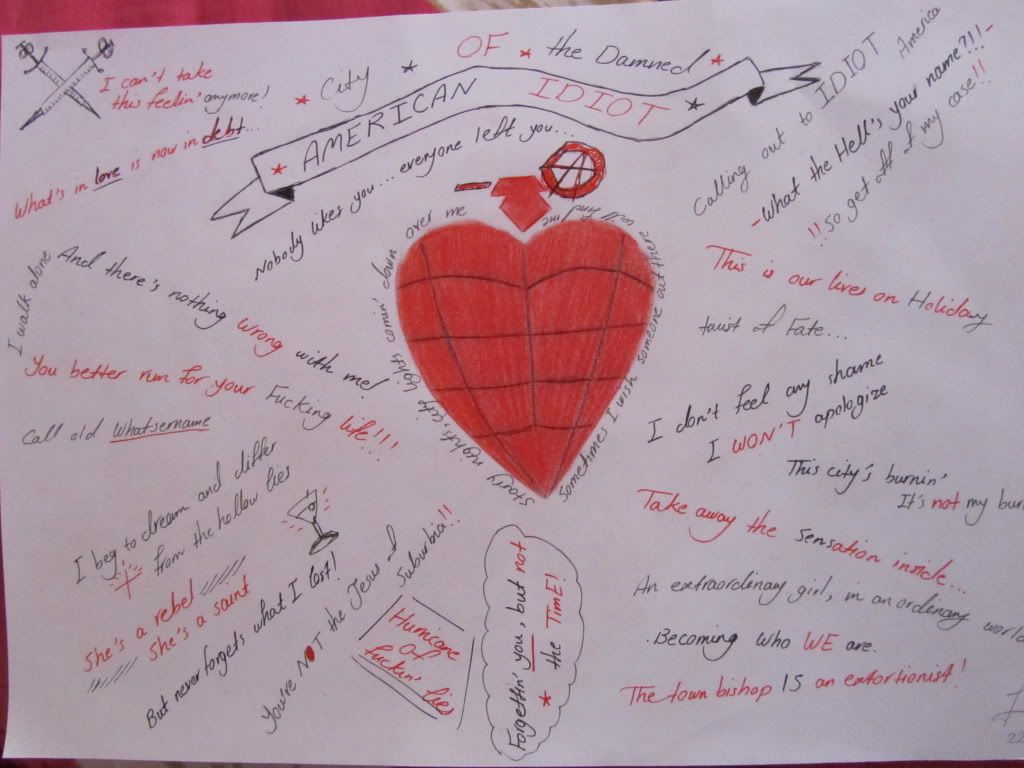 City ★ OF ★ the Damned ★
★ AMERICAN IDIOT ★
I can't take
this feelin' anymore!
What's in love is now in debt...
Nobody likes you... everyone left you...
Calling out to IDIOT America
-What the Hell's your name?!!-
!!so get off of my case!!
I walk alone
And there's nothing wrong with me!
You better run for your Fucking life!!!
Call old Whatsername
starry nights, city lights comin' down over me
sometimes I wish someone out there will find me
This is our lives on Holiday
twist of Fate...
I don't feel any shame
I WON'T apologize
This city's burnin'
It's not my bur
Take away the sensation inside...
An extraordinary girl, in an ordinary world
Becoming who WE are.
The town bishop IS an extortionist!
I beg to dream and differ
from the hollow lies
She's a rebel
She's a saint
But never forgets what I lost!
You're NOT the Jesus of
Suburbia!!
Hurricane
Of
fuckin' lies
Forgettin' you, but not
★ the Time!
22